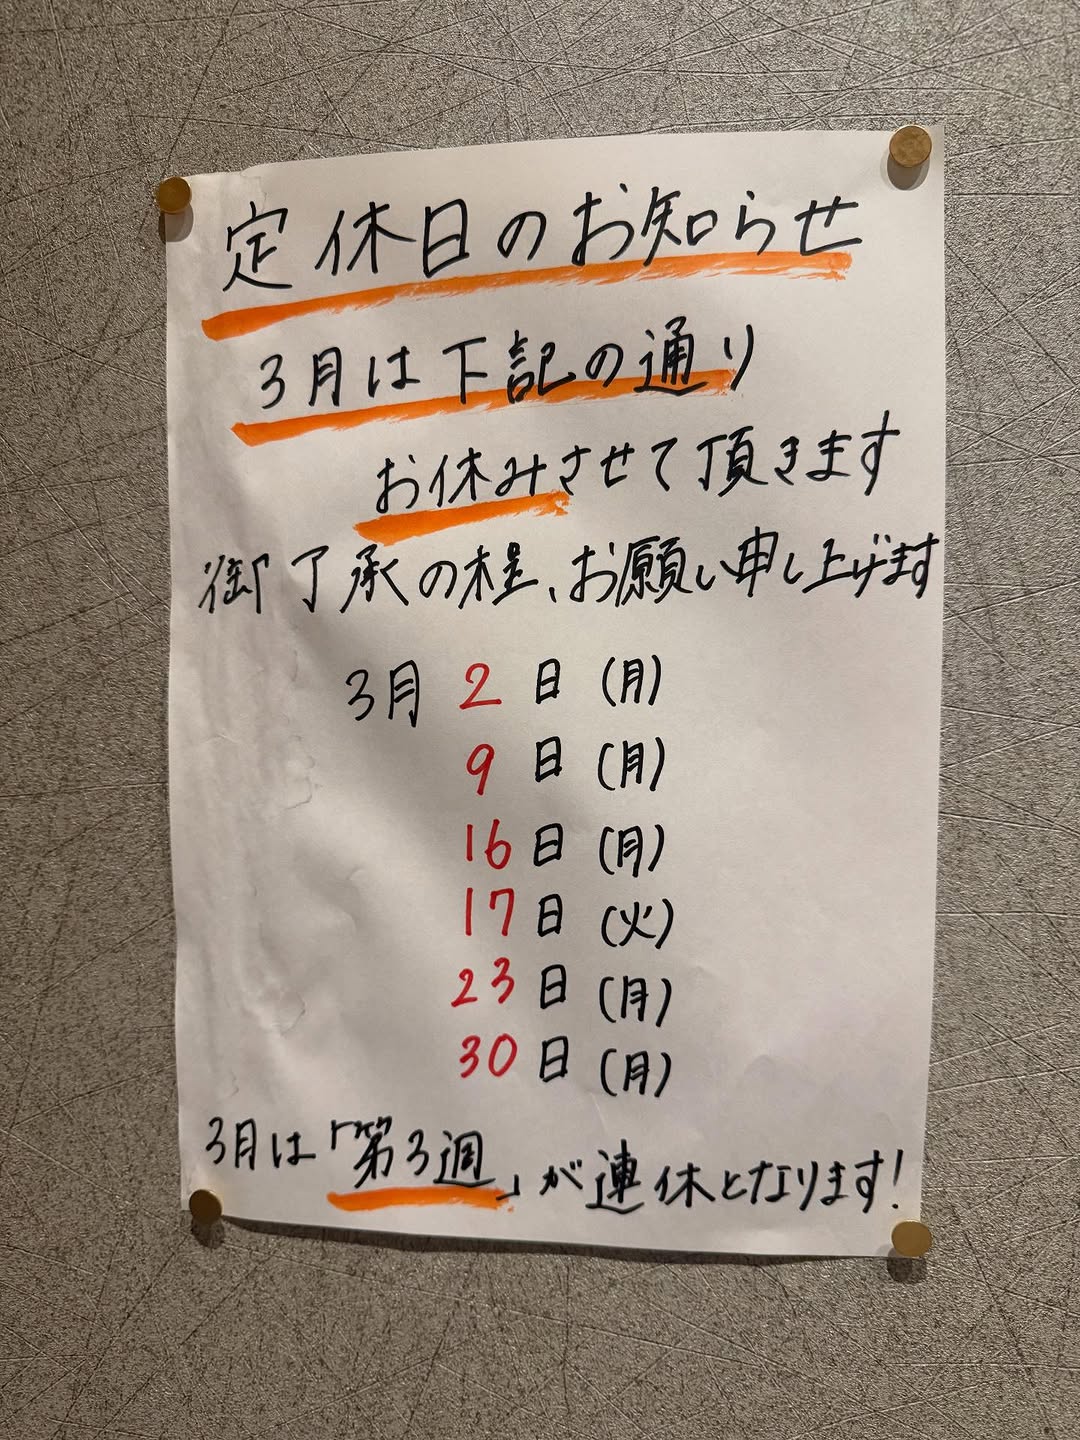 定休日のお知らせ
3月は下記の通り
お休みさせて頂きます
御了承の程、お願い申し上げます
3月 2日 (月)
9日 (月)
16日 (月)
17日 (火)
23日 (月)
30日 (月)
3月は「第3週」が連休となります!